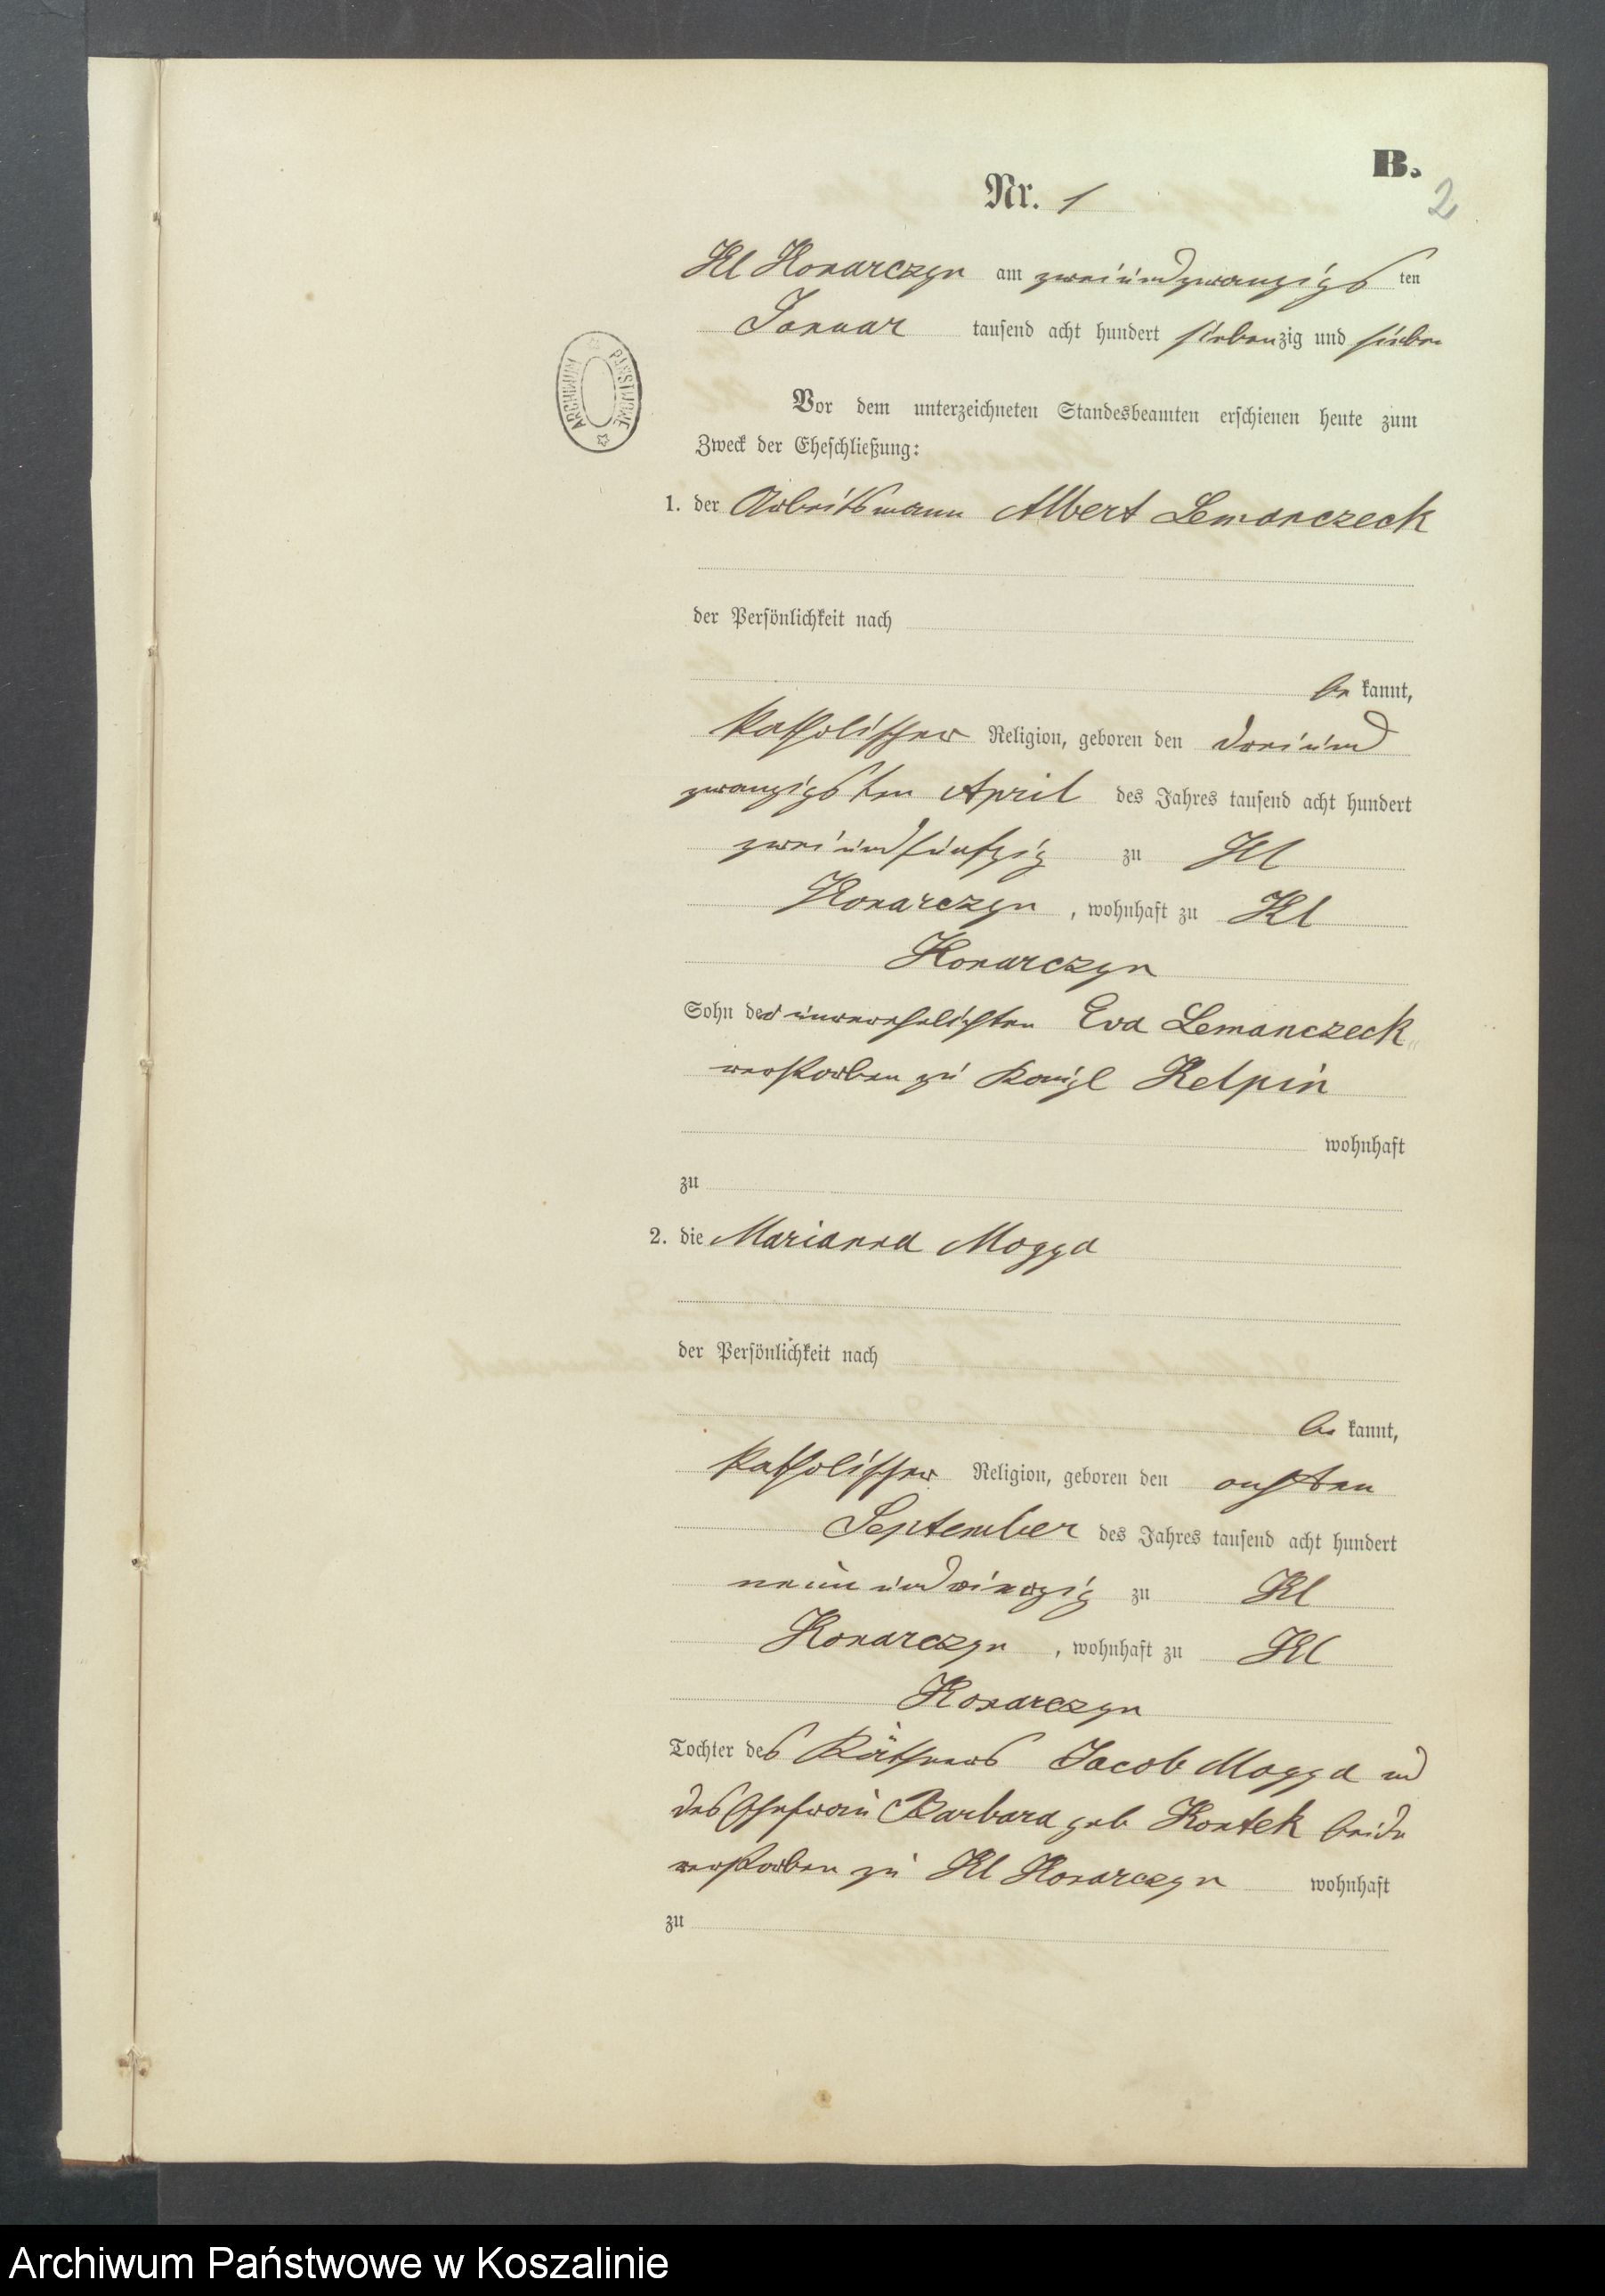 B.
2
Nr. 1
Kl Konarczyn am zweiundzwanzigsten
Januar tausend acht hundert siebenzig und sieben
ARCHIWUM PAŃSTWOWE
Vor dem unterzeichneten Standesbeamten erschienen heute zum
Zweck der Eheschließung:
1. der Arbeitsmann Albert Lemanczeck
der Persönlichkeit nach
be kannt,
katholischer Religion, geboren den dreiund
zwanzigsten April des Jahres tausend acht hundert
zweiundfünfzig zu Kl
Konarczyn, wohnhaft zu Kl
Konarczyn
Sohn der unverehelichten Eva Lemanczeck
verstorben zu Königl Kelpin
wohnhaft
zu
2. die Marianna Mogga
der Persönlichkeit nach
be kannt,
katholischer Religion, geboren den
September des Jahres tausend acht hundert
neunundvierzig zu Kl
Konarczyn, wohnhaft zu Kl
Konarczyn
Tochter des Käthners Jacob Mogga und
des Ehefrau Barbara geb Kontek beide
verstorben zu Kl Konarczyn wohnhaft
zu
Archiwum Państwowe w Koszalinie